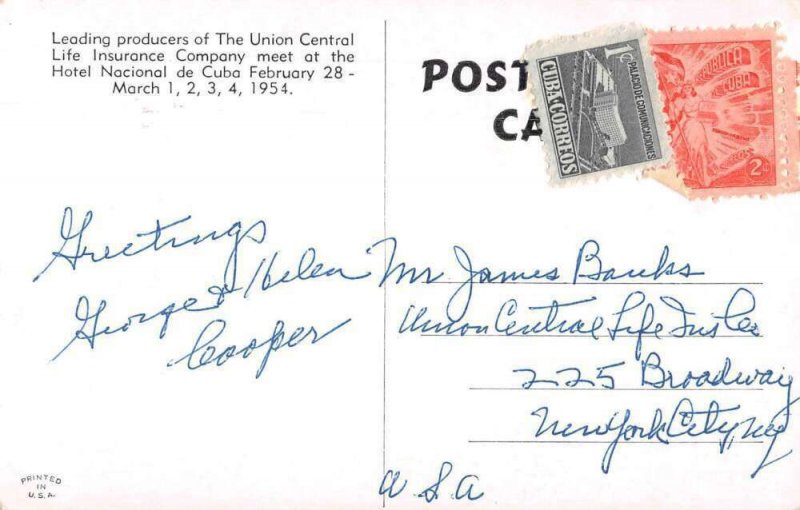 Leading producers of The Union Central
Life Insurance Company meet at the
Hotel Nacional de Cuba February 28 -
March 1, 2, 3, 4, 1954.
POST
CA
1¢
PALACIO DE COMUNICACIONES
CUBA·CORREOS
REPUBLICA
CUBA
2
Greetings
George & Helen
Cooper
Mr James Banks
Union Central Life Ins Co
225 Broadway
New York City, NY
U S A
PRINTED
IN
U.S.A.